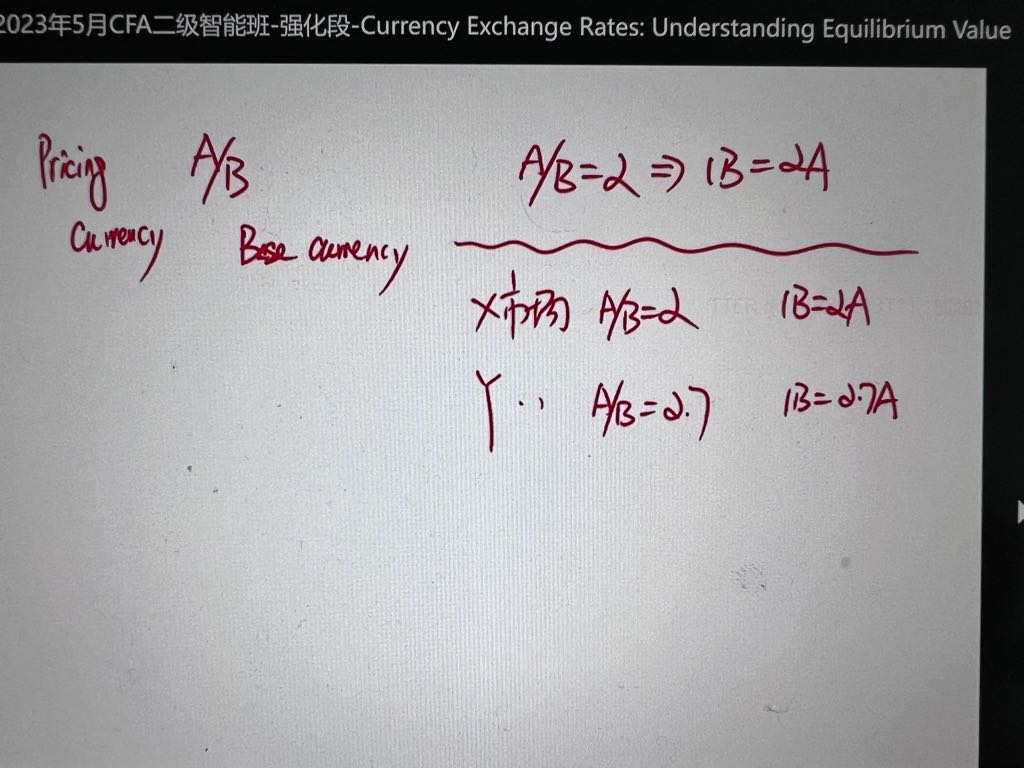 2023年5月CFA二级智能班-强化段-Currency Exchange Rates: Understanding Equilibrium Value
Pricing A/B A/B=2 ⇒ 1B=2A
Currency Base currency
X市场 A/B=2 1B=2A
Y ‥ A/B=2.7 1B=2.7A